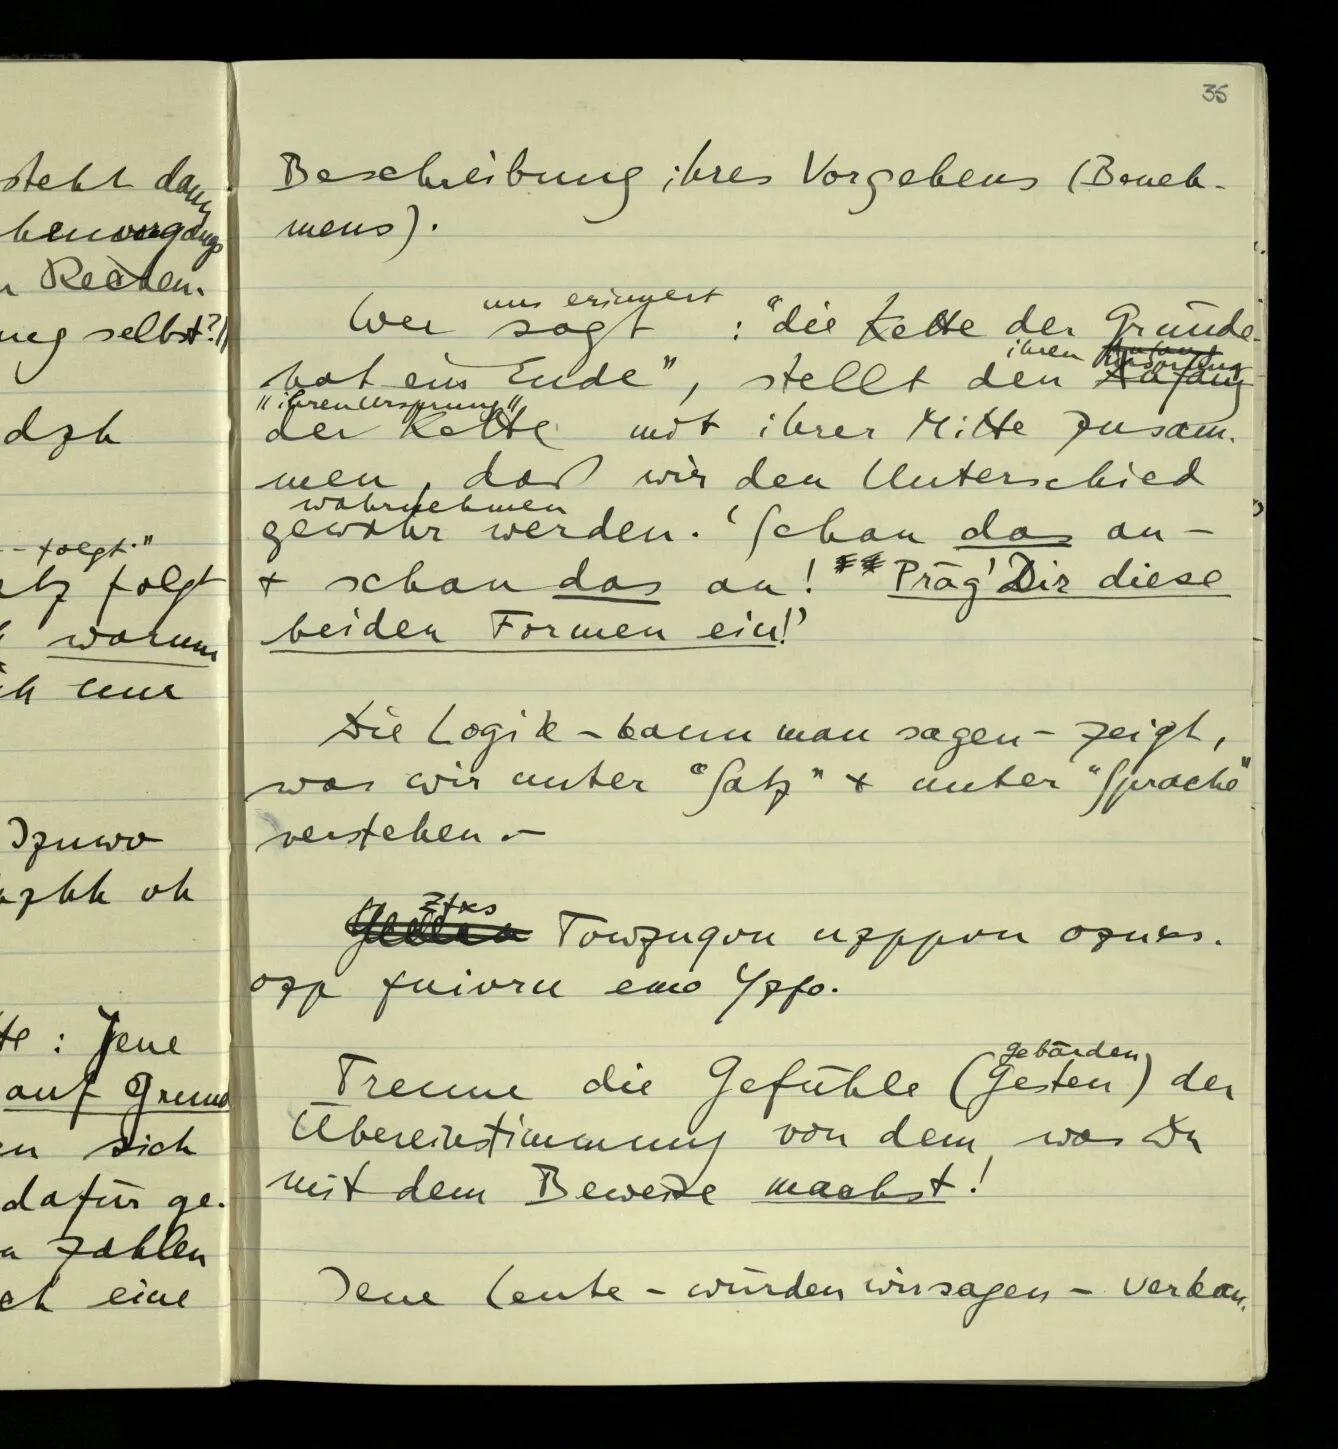 35
steht dann
henvorgangs
n Rechen.
ung selbst?//
dzh
-- folgt."
atz folgt
warum
ch nur
Izuwv
zhh vh
tte : Jene
auf Grund
en sich
dafür ge-
n zahlen
ch eine
Beschreibung ihres Vorgehens (Beneh-
mens).
uns erinnert
Wer sagt : "die Kette der Gründe
ihren Ursprung
hat ein Ende", stellt den Anfang
"ihren Ursprung"
der Kette mit ihrer Mitte zusam-
men, daß wir den Unterschied
wahrnehmen
gewahr werden. 'Schau das an –
+ schau das an! Präg' Dir diese
beiden Formen ein!'
Die Logik – kann man sagen – zeigt,
was wir unter "Satz" + unter "Sprache"
verstehen. –
Towzugvn nzppvn
emo
gebärden
Trenne die Gefühle (Gesten) der
Übereinstimmung von dem, was Du
mit dem Beweise machst!
Jene Leute – würden wir sagen – verkau-